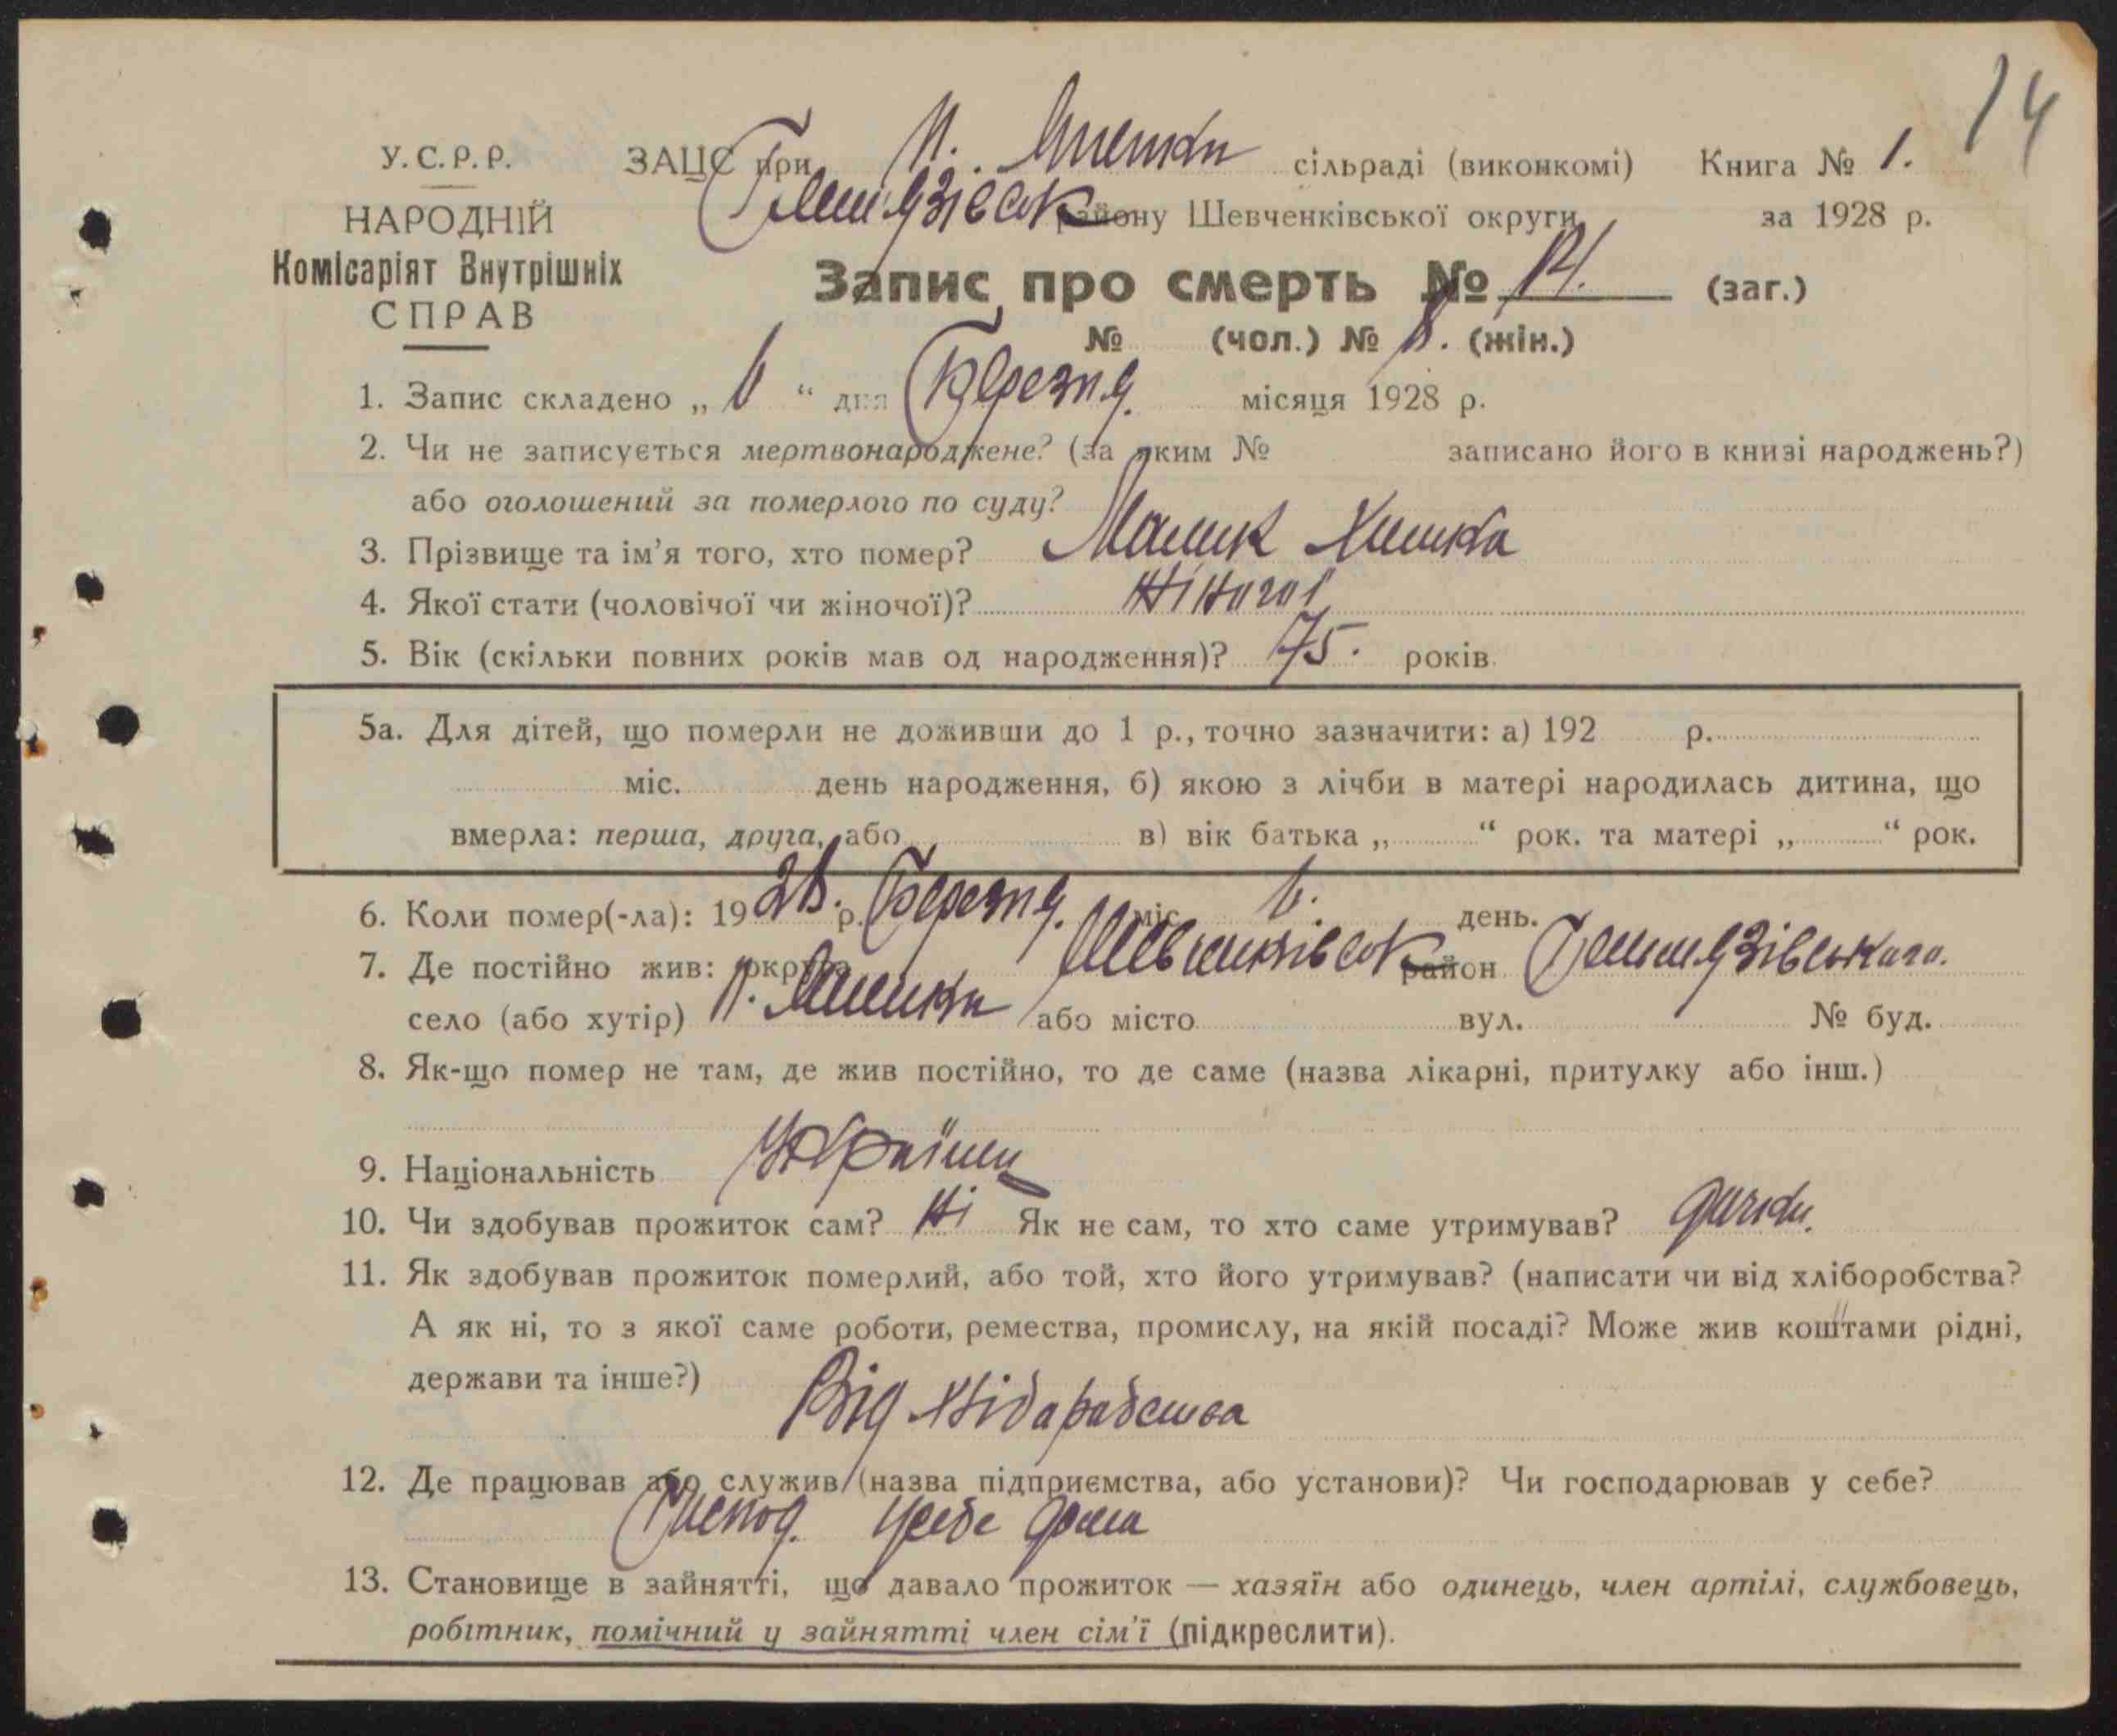 14
У.С.Р.Р.
НАРОДНІЙ
Комісаріят Внутрішніх
СПРАВ
ЗАЦС при Н. сільраді (виконкомі) Книга № 1.
Гельмязівськ району Шевченківської округи за 1928 р.
Запис про смерть № 14. (заг.)
№ (чол.) № 8. (жін.)
1. Запис складено „ 6 “ дня Березня. місяця 1928 р.
2. Чи не записується мертвонароджене? (за яким № записано його в книзі народжень?)
або оголошений за померлого по суду?
3. Прізвище та ім’я того, хто помер?
4. Якої стати (чоловічої чи жіночої)? жіночої
5. Вік (скільки повних років мав од народження)? 75. років
5а. Для дітей, що померли не доживши до 1 р., точно зазначити: а) 192 р.
міс. день народження, б) якою з лічби в матері народилась дитина, що
вмерла: перша, друга, або в) вік батька „ “ рок. та матері „ “ рок.
6. Коли помер(-ла): 1928. р. Березня. міс. 6. день.
7. Де постійно жив: округа Шевченківськ район Гельмязівського.
село (або хутір) Н. або місто вул. № буд.
8. Як-що помер не там, де жив постійно, то де саме (назва лікарні, притулку або інш.)
9. Національність
10. Чи здобував прожиток сам? Ні Як не сам, то хто саме утримував? дочка.
11. Як здобував прожиток померлий, або той, хто його утримував? (написати чи від хліборобства?
А як ні, то з якої саме роботи, ремества, промислу, на якій посаді? Може жив коштами рідні,
держави та інше?)
Від хліборобства
12. Де працював або служив (назва підприємства, або установи)? Чи господарював у себе?
Господ. усебе дома
13. Становище в зайнятті, що давало прожиток — хазяїн або одинець, член артілі, службовець,
робітник, помічний у зайнятті член сім’ї (підкреслити).